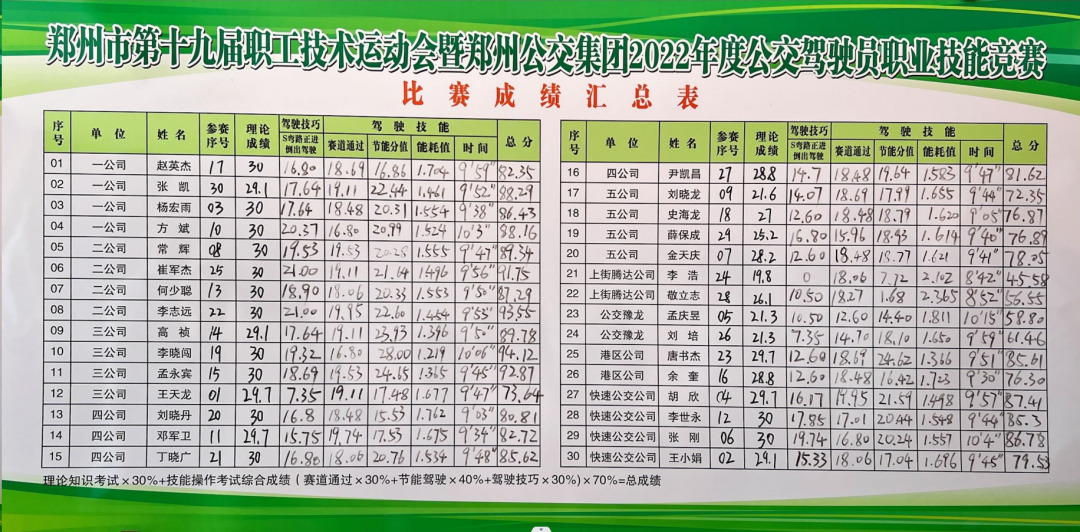 郑州市第十九届职工技术运动会暨郑州公交集团2022年度公交驾驶员职业技能竞赛
比赛成绩汇总表
序号 单位 姓名 参赛序号 理论成绩 驾驶技巧 S弯路正进倒出驾驶 驾驶技能 赛道通过 节能分值 能耗值 时间 总分
01 一公司 赵英杰 17 30 16.80 18.69 16.86 1.704 9'59" 82.35
02 一公司 张凯 30 29.1 17.64 19.11 22.44 1.461 9'52" 88.29
03 一公司 杨宏雨 03 30 17.64 18.48 20.31 1.554 9'38" 86.43
04 一公司 方斌 10 30 20.37 16.80 20.99 1.524 10'3" 88.16
05 二公司 常辉 08 30 19.53 19.53 20.28 1.555 9'47" 89.34
06 二公司 崔军杰 25 30 21.00 19.11 21.64 1496 9'56" 91.75
07 二公司 何少聪 13 30 18.90 18.06 20.33 1.553 9'50" 87.29
08 二公司 李志远 22 30 21.00 19.95 22.60 1.454 9'55" 93.55
09 三公司 高祯 14 29.1 17.64 19.11 23.93 1.396 9'50" 89.78
10 三公司 李晓闯 19 30 19.32 16.80 28.00 1.219 10'06" 94.12
11 三公司 孟永宾 15 30 18.69 19.53 24.65 1.365 9'45" 92.87
12 三公司 王天龙 01 29.7 7.35 19.11 17.48 1.677 9'47" 73.64
13 四公司 刘晓丹 20 30 16.8 18.48 15.53 1.762 9'03" 80.81
14 四公司 邓军卫 11 29.7 15.75 19.74 17.53 1.675 9'34" 82.72
15 四公司 丁晓广 21 30 16.80 18.06 20.76 1.534 9'48" 85.62
序号 单位 姓名 参赛序号 理论成绩 驾驶技巧 S弯路正进倒出驾驶 驾驶技能 赛道通过 节能分值 能耗值 时间 总分
16 四公司 尹凯昌 27 28.8 14.7 18.48 19.64 1.583 9'47" 81.62
17 五公司 刘晓龙 09 21.6 14.07 18.69 17.99 1.655 9'44" 72.35
18 五公司 史海龙 18 27 12.60 18.48 18.79 1.620 9'05" 76.87
19 五公司 薛保成 29 25.2 16.80 15.96 18.93 1.614 9'40" 76.89
20 五公司 金天庆 07 28.2 12.60 18.48 18.77 1.621 9'41" 78.05
21 上街腾达公司 李浩 24 19.8 0 18.06 7.72 2.102 8'42" 45.58
22 上街腾达公司 敬立志 28 26.1 10.50 18.27 1.68 2.365 8'52" 56.55
23 公交豫龙 孟庆昱 05 21.3 10.50 12.60 14.40 1.811 10'15" 58.80
24 公交豫龙 刘培 26 21.3 7.35 14.70 18.10 1.650 9'59" 61.46
25 港区公司 唐书杰 23 29.7 12.60 18.69 24.62 1.366 9'51" 85.61
26 港区公司 余奎 16 28.8 12.60 18.48 16.42 1.723 9'30" 76.30
27 快速公交公司 胡欣 04 29.7 16.17 19.95 21.59 1.498 9'57" 87.41
28 快速公交公司 李世永 12 30 17.85 17.01 20.44 1.548 9'44" 85.3
29 快速公交公司 张刚 06 30 19.74 16.80 20.24 1.557 10'4" 86.78
30 快速公交公司 王小娟 02 29.1 15.33 18.06 17.04 1.696 9'45" 79.53
理论知识考试×30%+技能操作考试综合成绩（赛道通过×30%+节能驾驶×40%+驾驶技巧×30%）×70%=总成绩